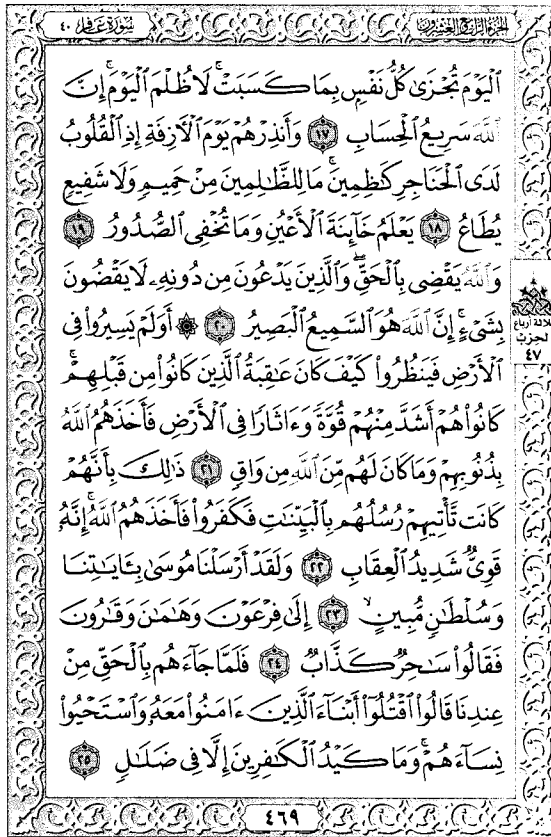 سُورَةُ غَافِرٍ ٤٠
الجُزْءُ الرَّابِعُ وَالعِشْرُونَ
ٱلْيَوْمَ تُجْزَىٰ كُلُّ نَفْسٍۭ بِمَا كَسَبَتْ ۚ لَا ظُلْمَ ٱلْيَوْمَ ۚ إِنَّ
ٱللَّهَ سَرِيعُ ٱلْحِسَابِ ١٧ وَأَنذِرْهُمْ يَوْمَ ٱلْـَٔازِفَةِ إِذِ ٱلْقُلُوبُ
لَدَى ٱلْحَنَاجِرِ كَـٰظِمِينَ ۚ مَا لِلظَّـٰلِمِينَ مِنْ حَمِيمٍ وَلَا شَفِيعٍ
يُطَاعُ ١٨ يَعْلَمُ خَآئِنَةَ ٱلْأَعْيُنِ وَمَا تُخْفِى ٱلصُّدُورُ ١٩
وَٱللَّهُ يَقْضِى بِٱلْحَقِّ ۖ وَٱلَّذِينَ يَدْعُونَ مِن دُونِهِۦ لَا يَقْضُونَ
بِشَىْءٍ ۗ إِنَّ ٱللَّهَ هُوَ ٱلسَّمِيعُ ٱلْبَصِيرُ ٢٠ ۞ أَوَلَمْ يَسِيرُوا۟ فِى
ٱلْأَرْضِ فَيَنظُرُوا۟ كَيْفَ كَانَ عَـٰقِبَةُ ٱلَّذِينَ كَانُوا۟ مِن قَبْلِهِمْ ۚ
كَانُوا۟ هُمْ أَشَدَّ مِنْهُمْ قُوَّةً وَءَاثَارًا فِى ٱلْأَرْضِ فَأَخَذَهُمُ ٱللَّهُ
بِذُنُوبِهِمْ وَمَا كَانَ لَهُم مِّنَ ٱللَّهِ مِن وَاقٍ ٢١ ذَٰلِكَ بِأَنَّهُمْ
كَانَت تَّأْتِيهِمْ رُسُلُهُم بِٱلْبَيِّنَـٰتِ فَكَفَرُوا۟ فَأَخَذَهُمُ ٱللَّهُ ۚ إِنَّهُۥ
قَوِىٌّ شَدِيدُ ٱلْعِقَابِ ٢٢ وَلَقَدْ أَرْسَلْنَا مُوسَىٰ بِـَٔايَـٰتِنَا
وَسُلْطَـٰنٍ مُّبِينٍ ٢٣ إِلَىٰ فِرْعَوْنَ وَهَـٰمَـٰنَ وَقَـٰرُونَ
فَقَالُوا۟ سَـٰحِرٌ كَذَّابٌ ٢٤ فَلَمَّا جَآءَهُم بِٱلْحَقِّ مِنْ
عِندِنَا قَالُوا۟ ٱقْتُلُوٓا۟ أَبْنَآءَ ٱلَّذِينَ ءَامَنُوا۟ مَعَهُۥ وَٱسْتَحْيُوا۟
نِسَآءَهُمْ ۚ وَمَا كَيْدُ ٱلْكَـٰفِرِينَ إِلَّا فِى ضَلَـٰلٍ ٢٥
ثلاثة أرباع
الحزب
٤٧
٤٦٩